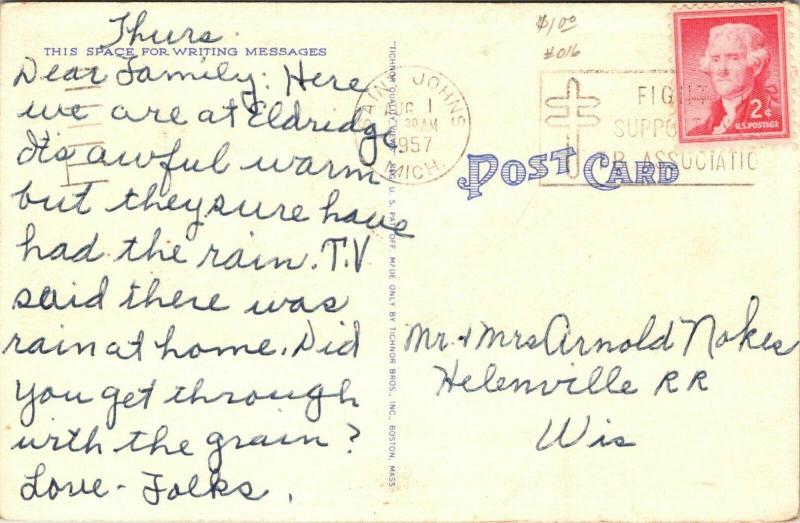 Thurs.
THIS SPACE FOR WRITING MESSAGES
Dear Family: Here
we are at Eldridge
Its awful warm
but they sure have
had the rain. T.V
said there was
rain at home. Did
you get through
with the grain?
Love - Folks.
"TICHNOR QUALITY VIEWS," REG. U. S. PAT. OFF. MADE ONLY BY TICHNOR BROS., INC., BOSTON, MASS.
$1.00
#016
SAINT JOHNS
1
AM
1957
MICH.
FIGHT
SUPPO
TB ASSOCIATIO
2¢
U.S. POSTAGE
POST CARD
Mr. + Mrs Arnold Nokes
Helenville RR
Wis